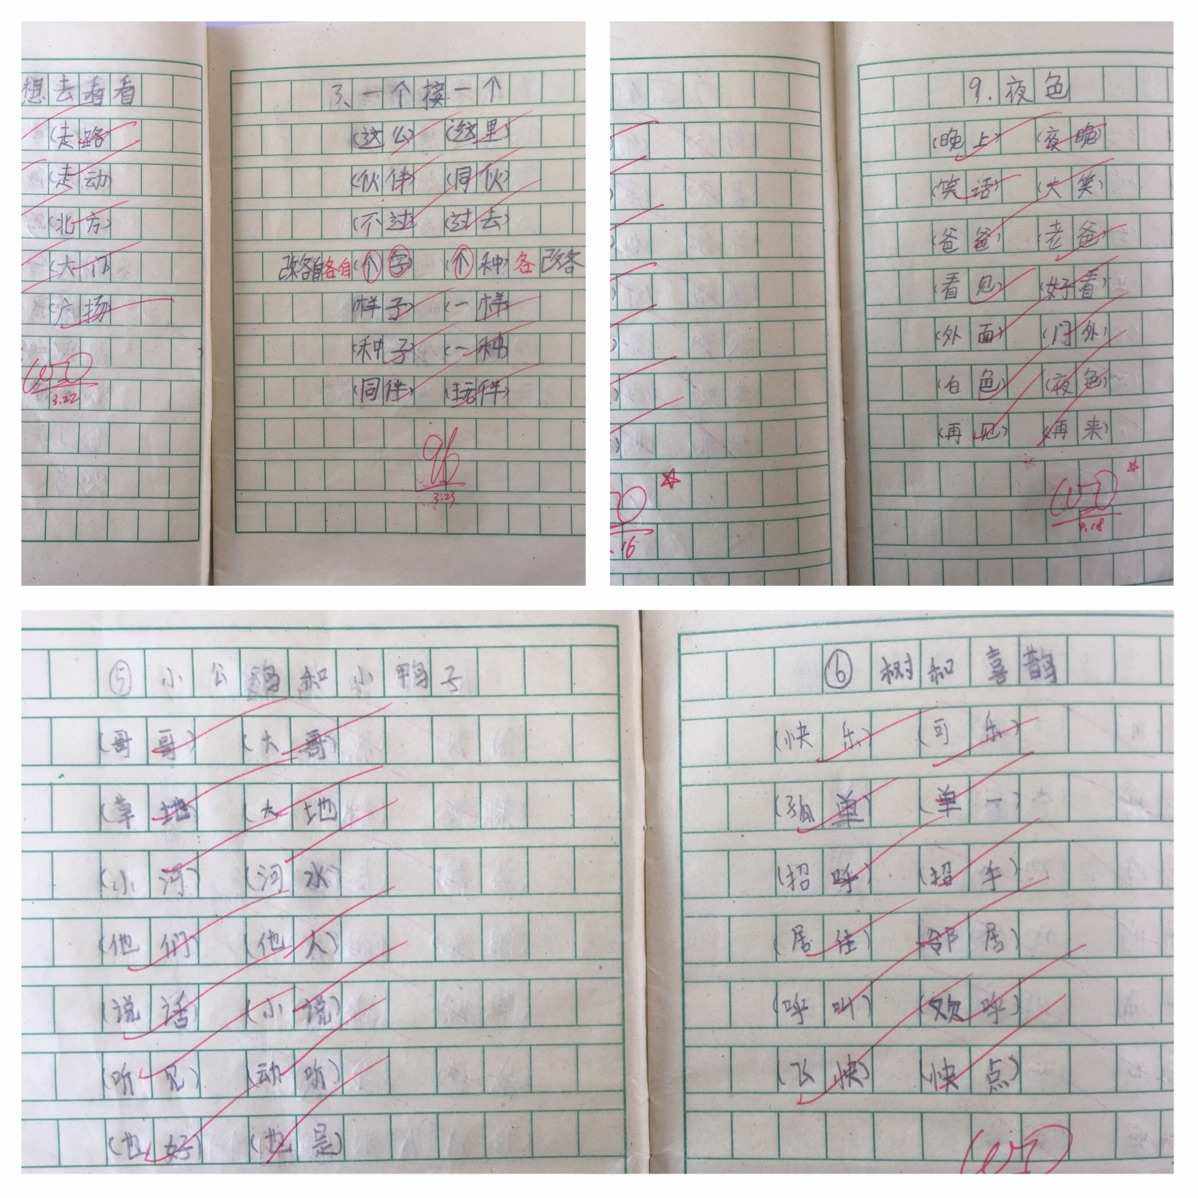 想去看看
(走路)
(走动)
(北方)
(大门)
(广场)
100
3.22
3、一个接一个
(这么) (这里)
(伙伴) (同伙)
(不过) (过去)
改各自各自(个字) (个种)各改各
(样子) (一样)
(种子) (一种)
(同伴) (玩伴)
96
3.23
9.夜色
(晚上) (夜晚)
(笑话) (大笑)
(爸爸) (老爸)
(看见) (好看)
(外面) (门外)
(白色) (夜色)
(再见) (再来)
.16
100
4.18
⑤小公鸡和小鸭子
(哥哥) (大哥)
(草地) (大地)
(小河) (河水)
(他们) (他人)
(说话) (小说)
(听见) (动听)
(也好) (也是)
⑥树和喜鹊
(快乐) (可乐)
(孤单) (单一)
(招呼) (招手)
(居住) (邻居)
(呼叫) (欢呼)
(飞快) (快点)
100